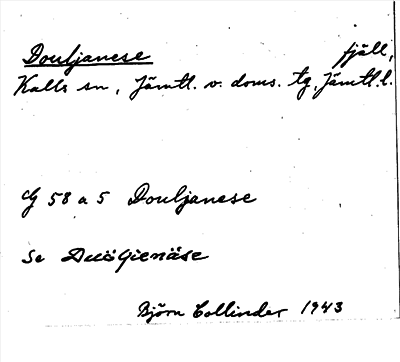 Douljanese fjäll,
Kalls sn, Jämtl. v. doms. tg, Jämtl. l.
G 58 a 5 Douljanese
Se
Björn Collinder 1943